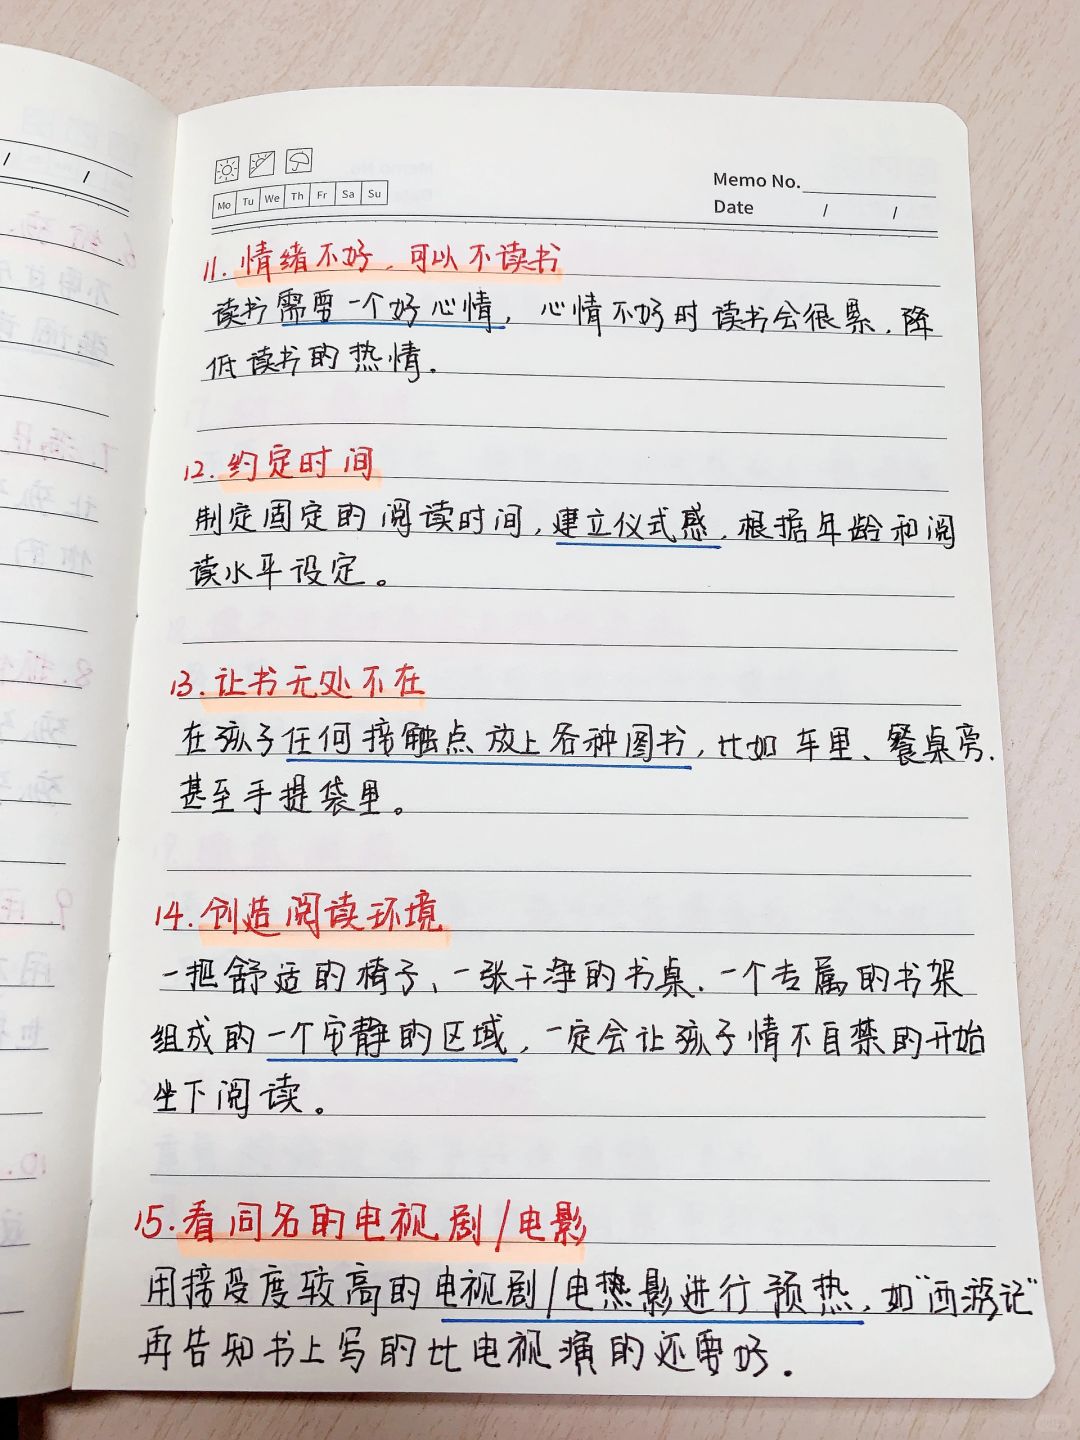 Mo Tu We Th Fr Sa Su
Memo No.
Date / /
11. 情绪不好，可以不读书
读书需要一个好心情，心情不好时读书会很累，降
低读书的热情．
12. 约定时间
制定固定的阅读时间，建立仪式感，根据年龄和阅
读水平设定。
13. 让书无处不在
在孩子任何接触点放上各种图书，比如车里、餐桌旁．
甚至手提袋里。
14. 创造阅读环境
一把舒适的椅子、一张干净的书桌、一个专属的书架
组成的一个安静的区域，一定会让孩子情不自禁的开始
坐下阅读。
15. 看同名的电视剧/电影
用接受度较高的电视剧/电热影进行预热，如"西游记"
再告知书上写的比电视演的还要好．